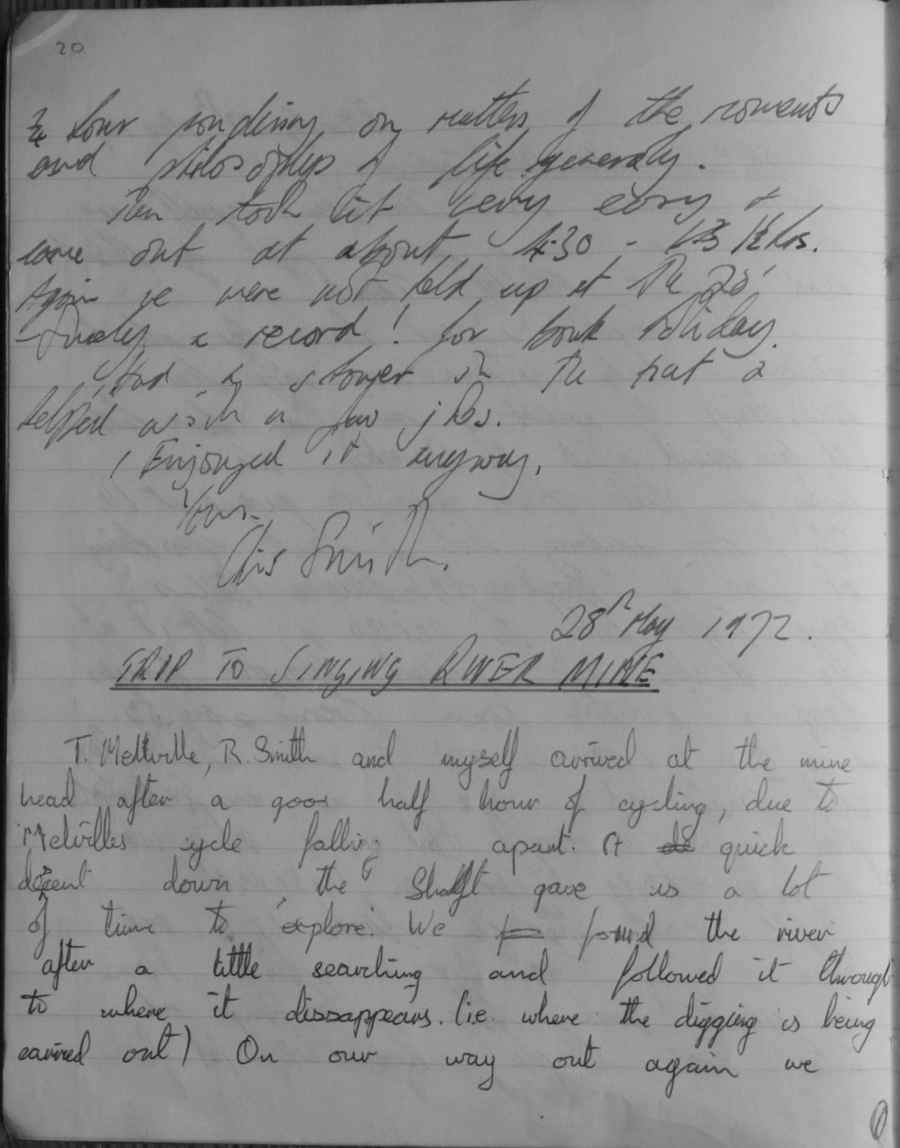 20
¾ hour pondering on matters of the moments
and philosophys of life generally.
Then took it very easy &
came out at about 4:30 - hrs.
Again we were not held up at the 20'
- Surely a record! for bank holiday.
Had a stranger in the hut &
helped with a few jobs.
I Enjoyed it anyway,
Yours,
Chris Smith.
28th May 1972.
TRIP TO SINGING RIVER MINE
T. Meltville, R. Smith and myself arrived at the mine
head after a good half hour of cycling, due to
Melvilles cycle falling apart. A quick
decent down the Shaft gave us a lot
of time to explore. We found the river
after a little searching and followed it through
to where it dissappears. (ie. where the digging is being
carried out) On our way out again we